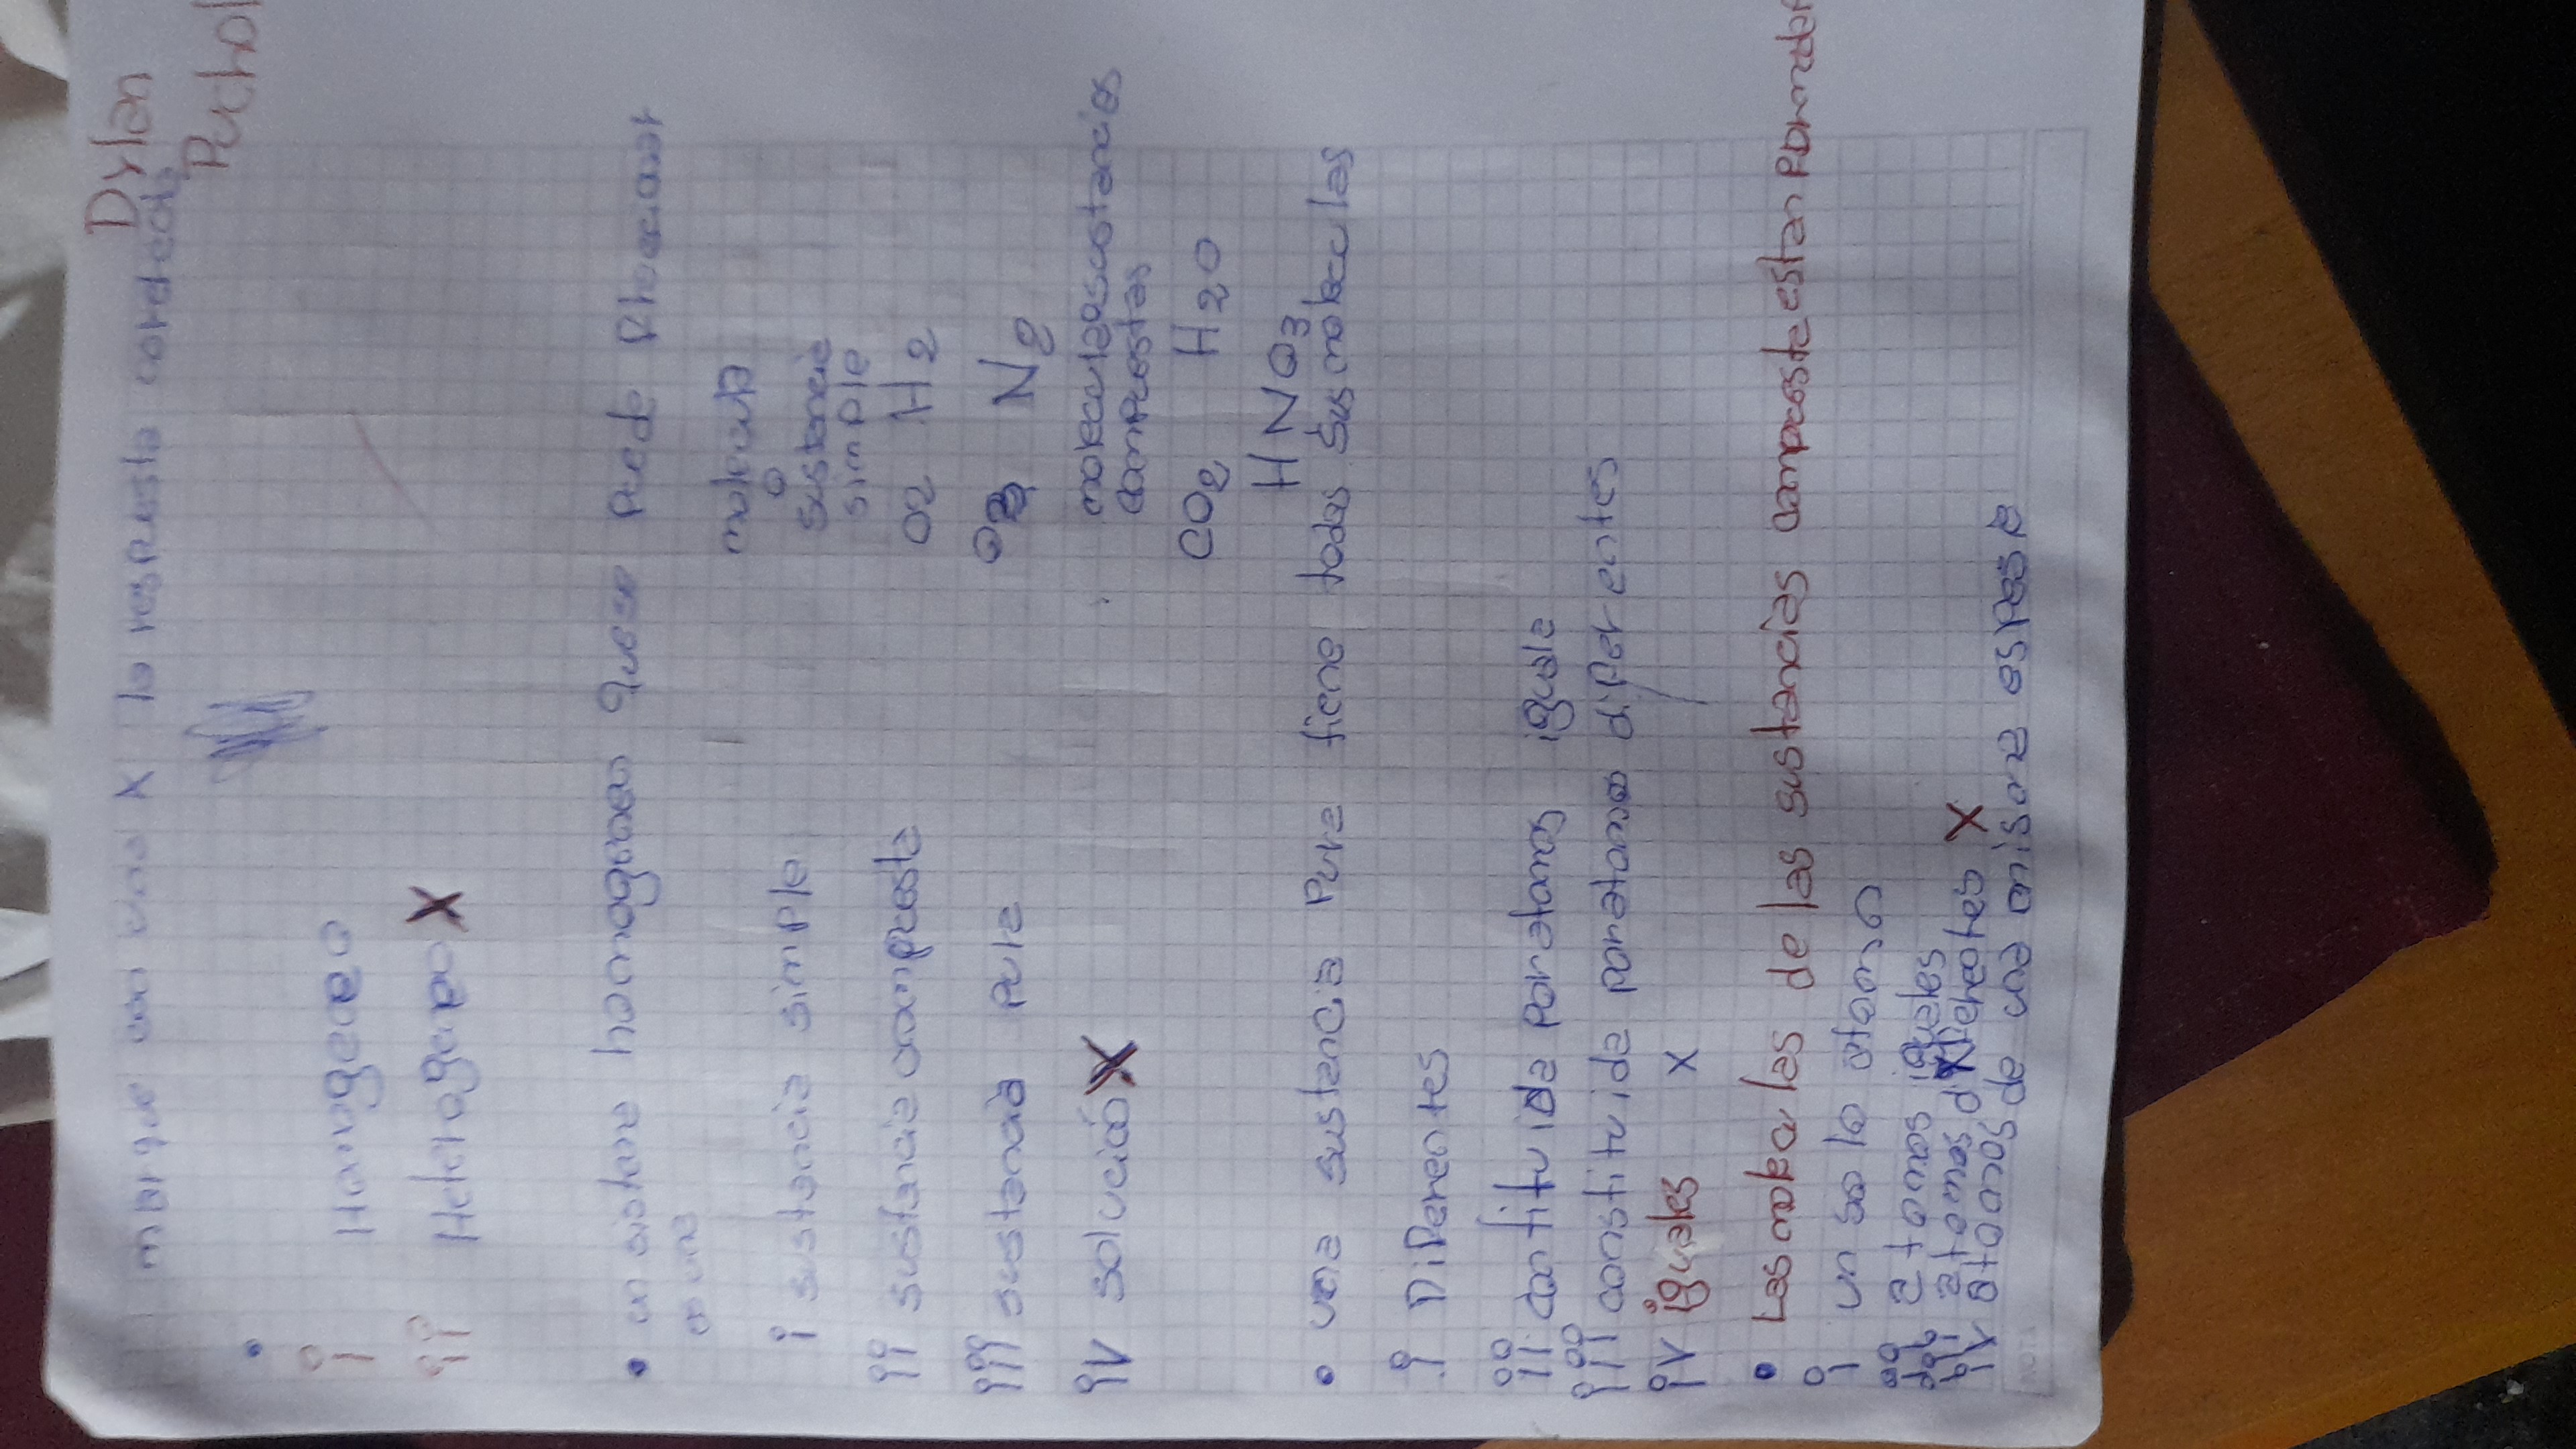 Dylan
Puchol
marque con una X la respuesta correcta
•
i Homogeneo
ii Heterogeneo X
• un sistema homogeneo que se puede fraccionar
es una
i sustancia simple
ii sustancia compuesta
iii sustancia pura
iv solución X
molecula
o
sustancia
simple
O2 H2
O3 N2
moleculas sustancias
compuestas
CO2 H2O
HNO3
• una sustancia pura tiene todas sus moleculas
i Diferentes
ii contituida por atomos iguale
iii constituida por atomos diferentes
iv iguales X
• Las moleculas de las sustancias compuesta estan formadas
i un solo atomo
ii atomos iguales
iii atomos diferentes X
iv atomos de una misma especie